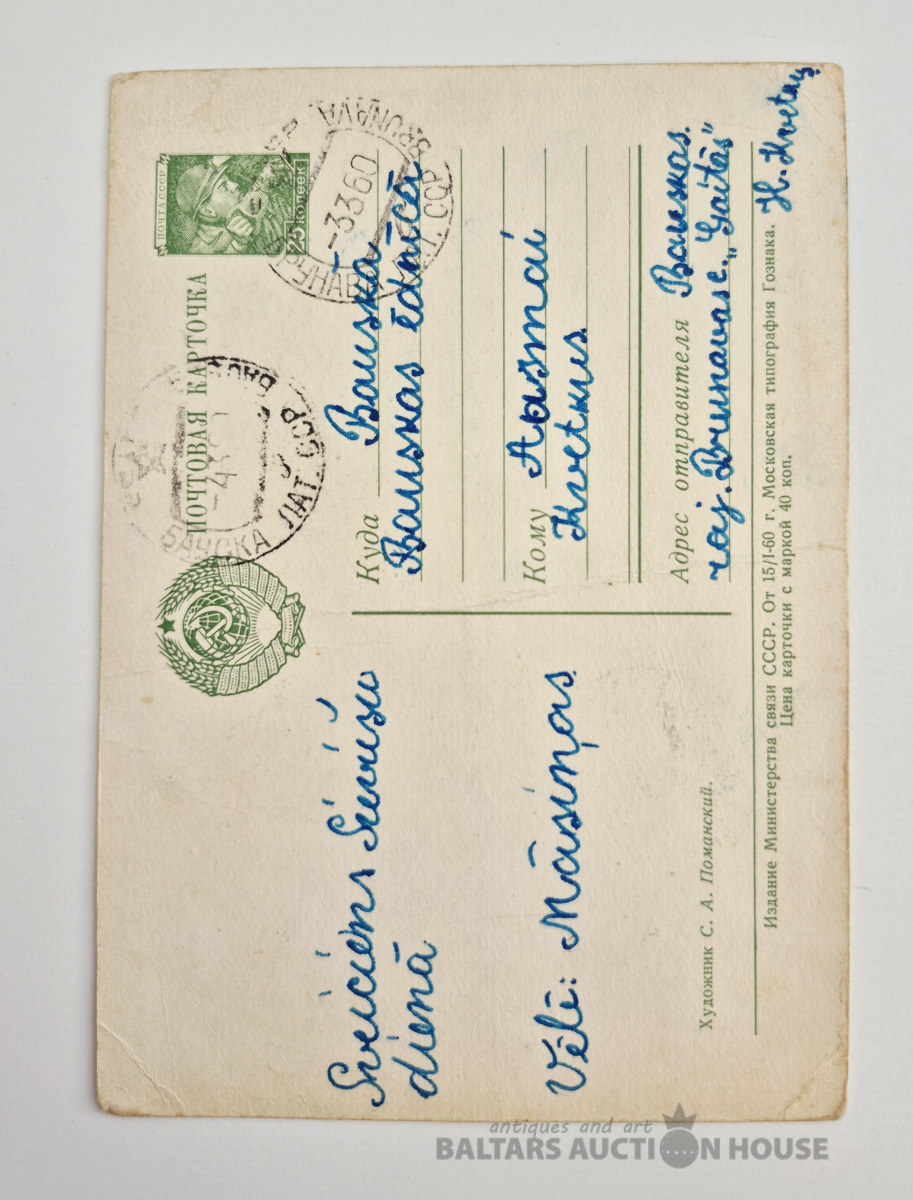 ПОЧТОВАЯ КАРТОЧКА
ПОЧТА СССР
25 КОПЕЕК
БРУНАВА ЛАТ. ССР
BRUNAVA
-3 3 60
БАУСКА ЛАТ. ССР
-4
Sveiciens Sievišu
dienā
Vēlē: Māsiņas
Художник С. А. Поманский.
Куда Bauskā
Bauskas ēdnīcā
Кому Aasmai
Kvetkus
Адрес отправителя Bauskas
raj. Brunavas c. „Gaitās”
H. Kvetuņ
Издание Министерства связи СССР. От 15/I-60 г. Московская типография Гознака.
Цена карточки с маркой 40 коп.
antiques and art
BALTARS AUCTION HOUSE